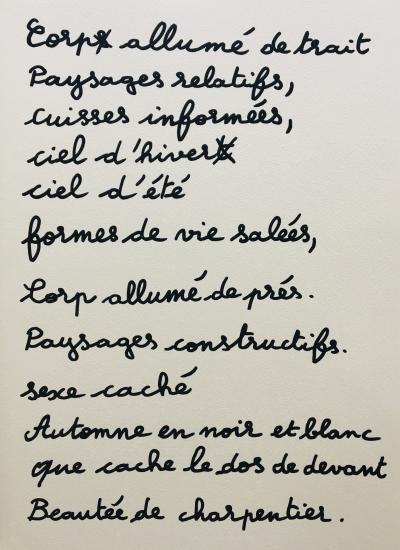 Corps allumé de trait
Paysages relatifs,
cuisses informées,
ciel d'hiver
ciel d'été
formes de vie salées,
Corp allumé de près.
Paysages constructifs.
sexe caché
Automne en noir et blanc
que cache le dos de devant
Beautée de charpentier.